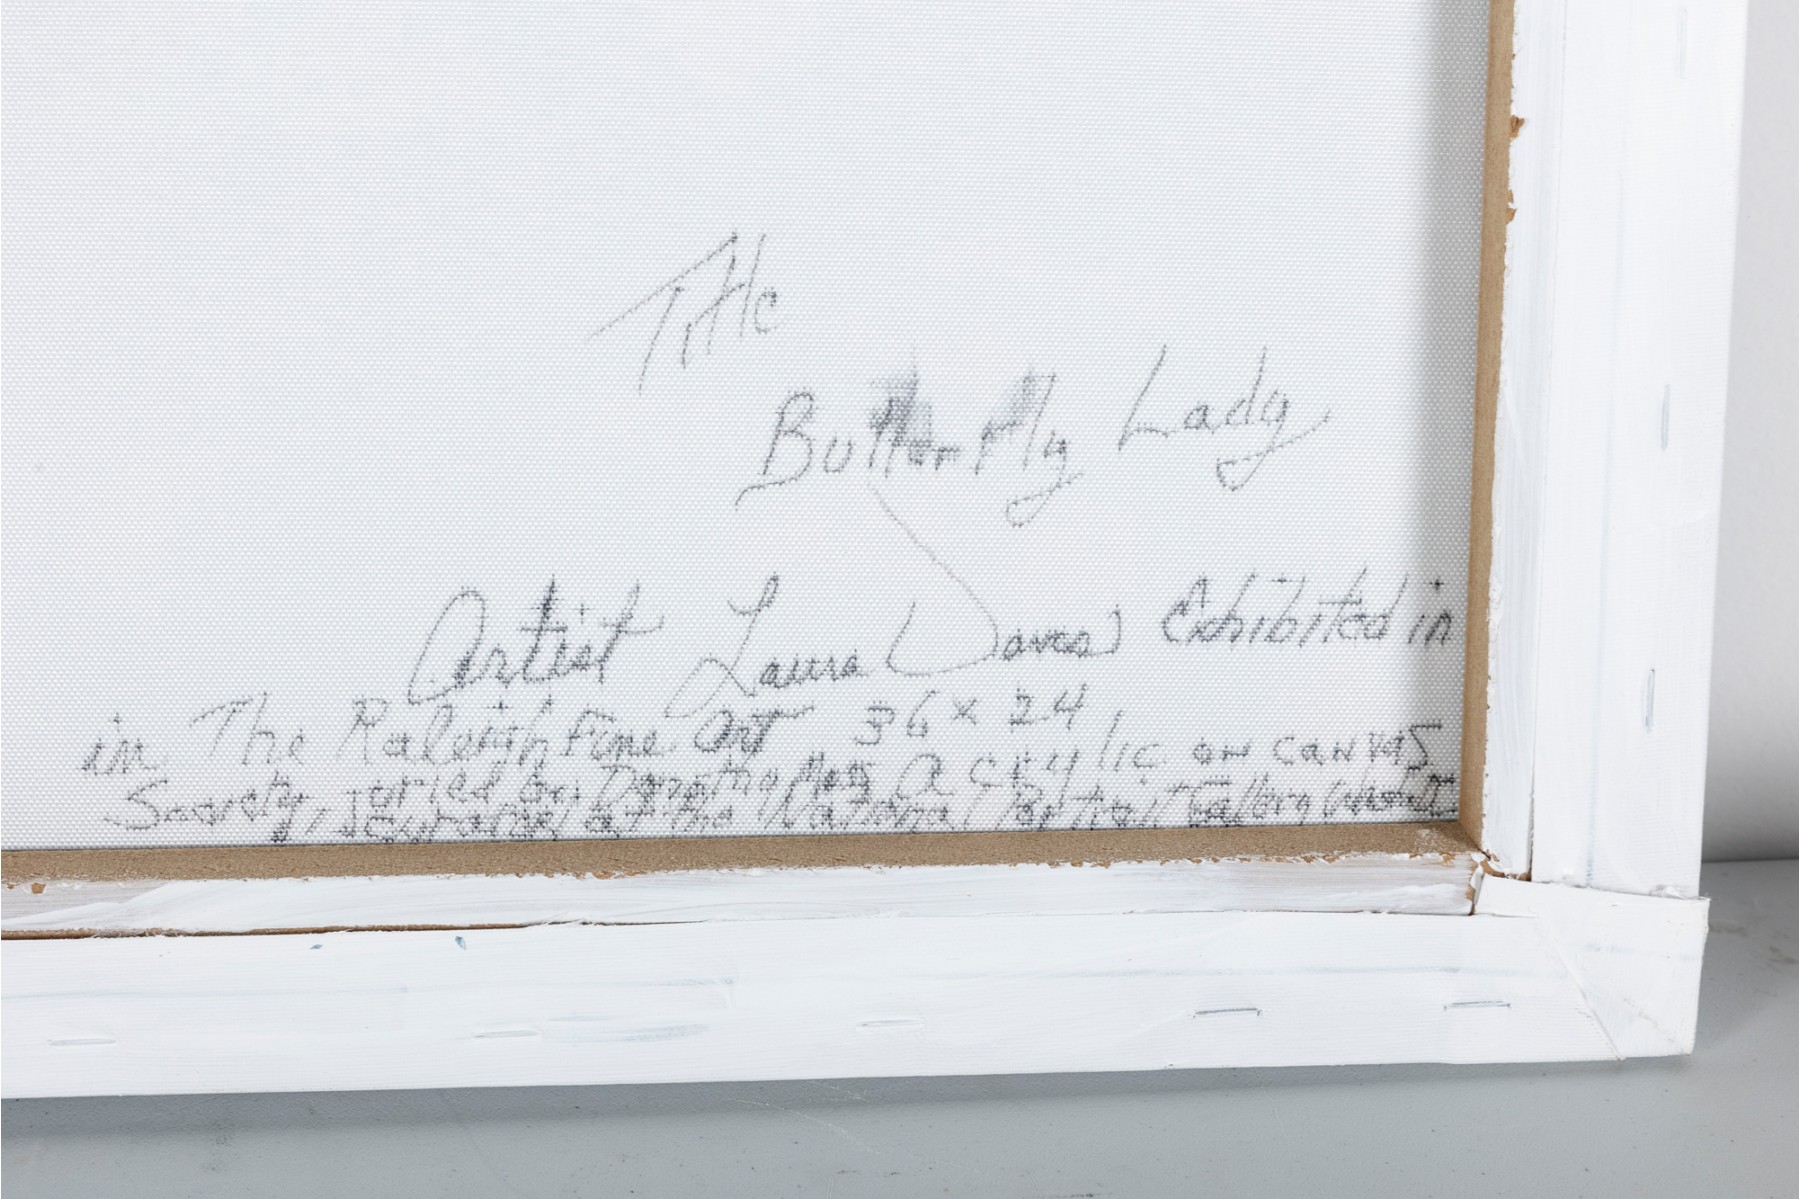 Title
Butterfly Lady
Artist Laura Davis Exhibited in
in The Raleigh Fine Art 36 x 24
Society, juried by Dorothy Moss Acrylic on canvas
at the National Portrait Gallery